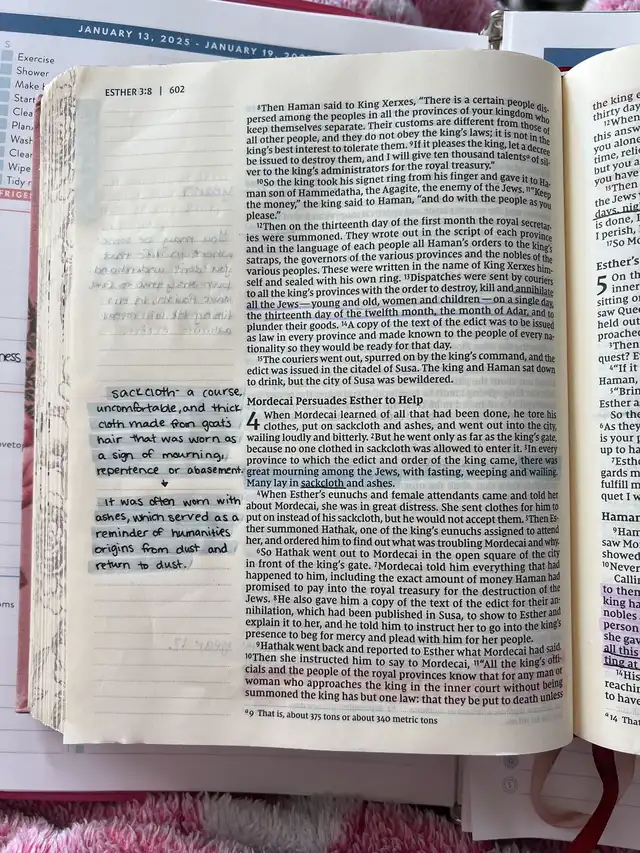 JANUARY 13, 2025 - JANUARY 19, 20
S
Exercise
Shower
Make
Start
Clea
Plan
Wash
Clear
Wipe
Tidy r
FRIGE
ness
oms
ESTHER 3:8 | 602
⁸Then Haman said to King Xerxes, “There is a certain people dis-
persed among the peoples in all the provinces of your kingdom who
keep themselves separate. Their customs are different from those of
all other people, and they do not obey the king’s laws; it is not in the
king’s best interest to tolerate them. ⁹If it pleases the king, let a decree
be issued to destroy them, and I will give ten thousand talentsᵃ of sil-
ver to the king’s administrators for the royal treasury.”
¹⁰So the king took his signet ring from his finger and gave it to Ha-
man son of Hammedatha, the Agagite, the enemy of the Jews. ¹¹“Keep
the money,” the king said to Haman, “and do with the people as you
please.”
¹²Then on the thirteenth day of the first month the royal secretar-
ies were summoned. They wrote out in the script of each province
and in the language of each people all Haman’s orders to the king’s
satraps, the governors of the various provinces and the nobles of the
various peoples. These were written in the name of King Xerxes him-
self and sealed with his own ring. ¹³Dispatches were sent by couriers
to all the king’s provinces with the order to destroy, kill and annihilate
all the Jews — young and old, women and children — on a single day,
the thirteenth day of the twelfth month, the month of Adar, and to
plunder their goods. ¹⁴A copy of the text of the edict was to be issued
as law in every province and made known to the people of every na-
tionality so they would be ready for that day.
¹⁵The couriers went out, spurred on by the king’s command, and the
edict was issued in the citadel of Susa. The king and Haman sat down
to drink, but the city of Susa was bewildered.
Mordecai Persuades Esther to Help
4 When Mordecai learned of all that had been done, he tore his
clothes, put on sackcloth and ashes, and went out into the city,
wailing loudly and bitterly. ²But he went only as far as the king’s gate,
because no one clothed in sackcloth was allowed to enter it. ³In every
province to which the edict and order of the king came, there was
great mourning among the Jews, with fasting, weeping and wailing.
Many lay in sackcloth and ashes.
⁴When Esther’s eunuchs and female attendants came and told her
about Mordecai, she was in great distress. She sent clothes for him to
put on instead of his sackcloth, but he would not accept them. ⁵Then Es-
ther summoned Hathak, one of the king’s eunuchs assigned to attend
her, and ordered him to find out what was troubling Mordecai and why.
⁶So Hathak went out to Mordecai in the open square of the city
in front of the king’s gate. ⁷Mordecai told him everything that had
happened to him, including the exact amount of money Haman had
promised to pay into the royal treasury for the destruction of the
Jews. ⁸He also gave him a copy of the text of the edict for their an-
nihilation, which had been published in Susa, to show to Esther and
explain it to her, and he told him to instruct her to go into the king’s
presence to beg for mercy and plead with him for her people.
⁹Hathak went back and reported to Esther what Mordecai had said.
¹⁰Then she instructed him to say to Mordecai, ¹¹“All the king’s offi-
cials and the people of the royal provinces know that for any man or
woman who approaches the king in the inner court without being
summoned the king has but one law: that they be put to death unless
ᵃ 9 That is, about 375 tons or about 340 metric tons
sackcloth- a course,
uncomfortable, and thick
cloth made from goats
hair that was worn as
a sign of mourning,
repentence or abasement.
↓
It was often worn with
ashes, which served as a
reminder of humanities
origins from dust and
return to dust.
the king e
thirty day
¹²When
this answ
you alone
time, relie
you have
¹⁵Then
the Jews
days, nig
is done, I
I perish, I
¹⁷So M
Esther’s
5 On th
inner
sitting o
saw Quee
held out
proached
³Then
quest? E
⁴“If it
Haman,
⁵“Brin
Esther a
So the
⁶As they
is your p
up to ha
⁷Esthe
gards m
fulfill m
quet I w
Haman
⁹Ham
saw Mo
showed
¹⁰Never
Calli
to then
king ha
nobles
person
she gav
all this
ting at
¹⁴His
reachin
to have
ᵃ 14 Tha